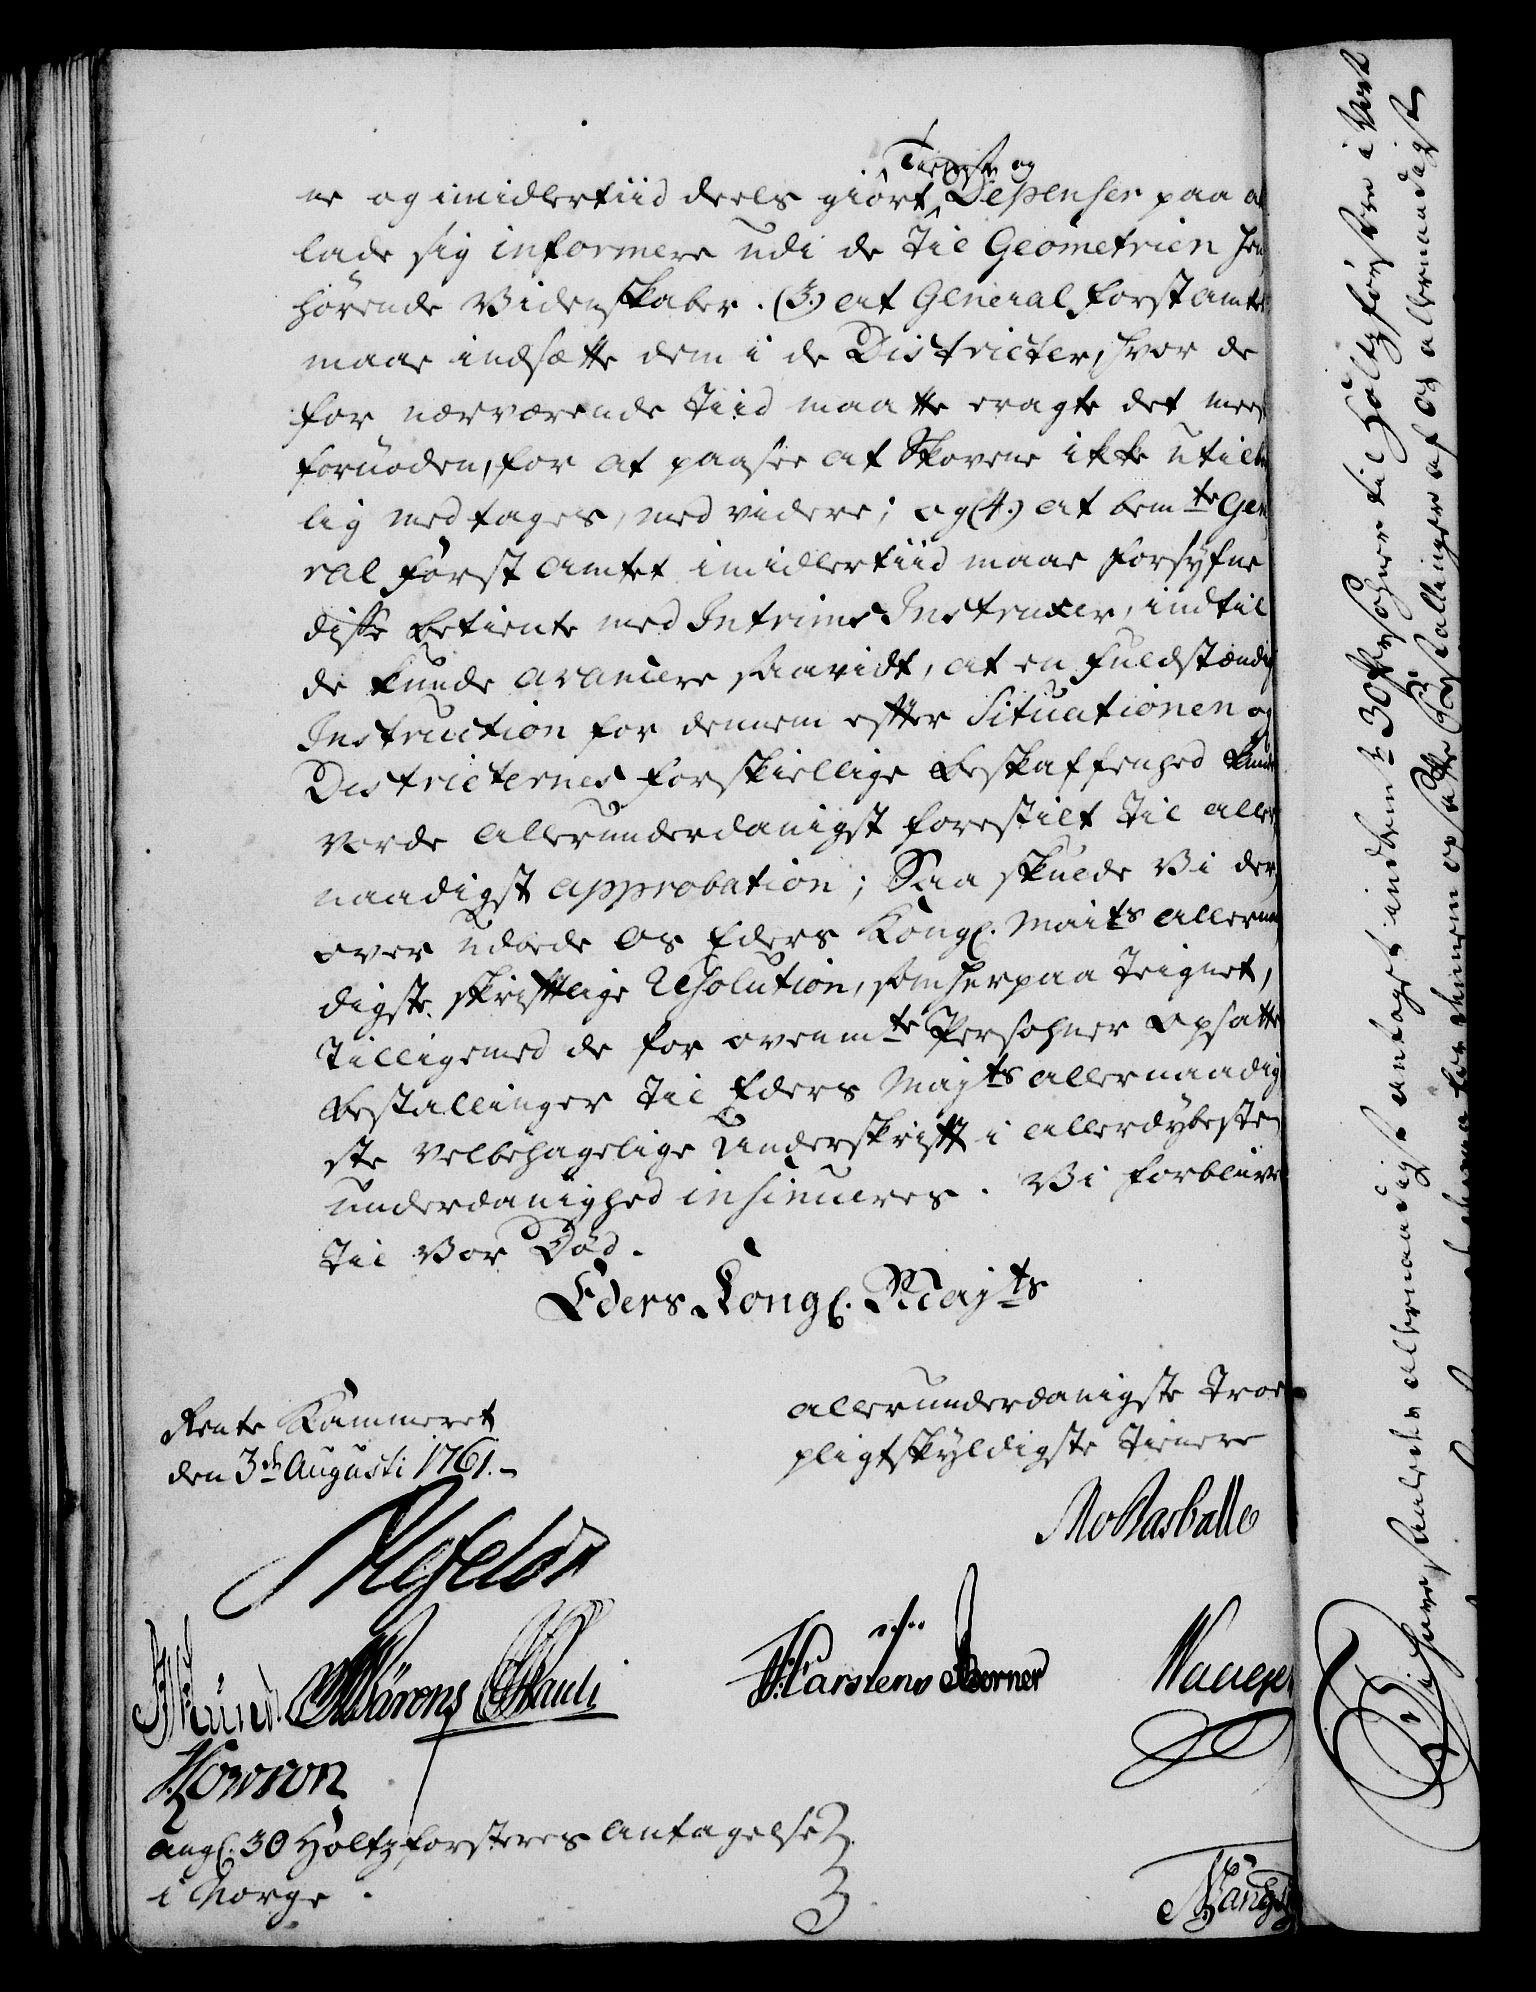 Tieniste og
ne og imidlertiid deels giört Depenser paa at
lade sig informere udi de til Geometrien hen
hörende Videnskaber. (3.) at General Forst Amtet
maae indsætte dem i de Districter, hvor de
for nærværende Tiid maatte eragte det meest
fornöden, for at paasee at Skovene ikke utilbør
lig medtages, med videre; og (4.) at bemte Gene
ral Forst Amtet imidlertiid maae forsyfne
disse Betiente med Intrims Instruxer, indtil
de kunde avancere saavidt, at en fuldstændig
Instruction for dennem efter Situationen og
Districternes forskiellige Beskaffenhed kunde
vorde allerunderdanigst forestilt til aller
naadigst approbation; Saa skulde Vi der
over udbede os Eders Kongl. Maits allernaa
digste skriftlige Resolution, som herpaa teignet,
tilligemed de for ovenmte Persohner opsatte
Bestallinger til Eders Majts allernaadig
ste velbehagelige Underskrift i allerdybeste
underdanighed insinueres. Vi forblive
til Vor Död.
Eders Kongl. Majts
allerunderdanigste Troe
pligtskyldigste Tienere
Rente Kammeret
den 3de Augusti 1761.
Ahlefeldt
Pauli
H: Carstens Koerner
Howson
angl. 30 Holtzforsteres Antagelse
i Norge.
Vi have saaledes allernaadigst antaget indbemte 30 Persohner til Holtzförstere i Vort
og allernaadigst